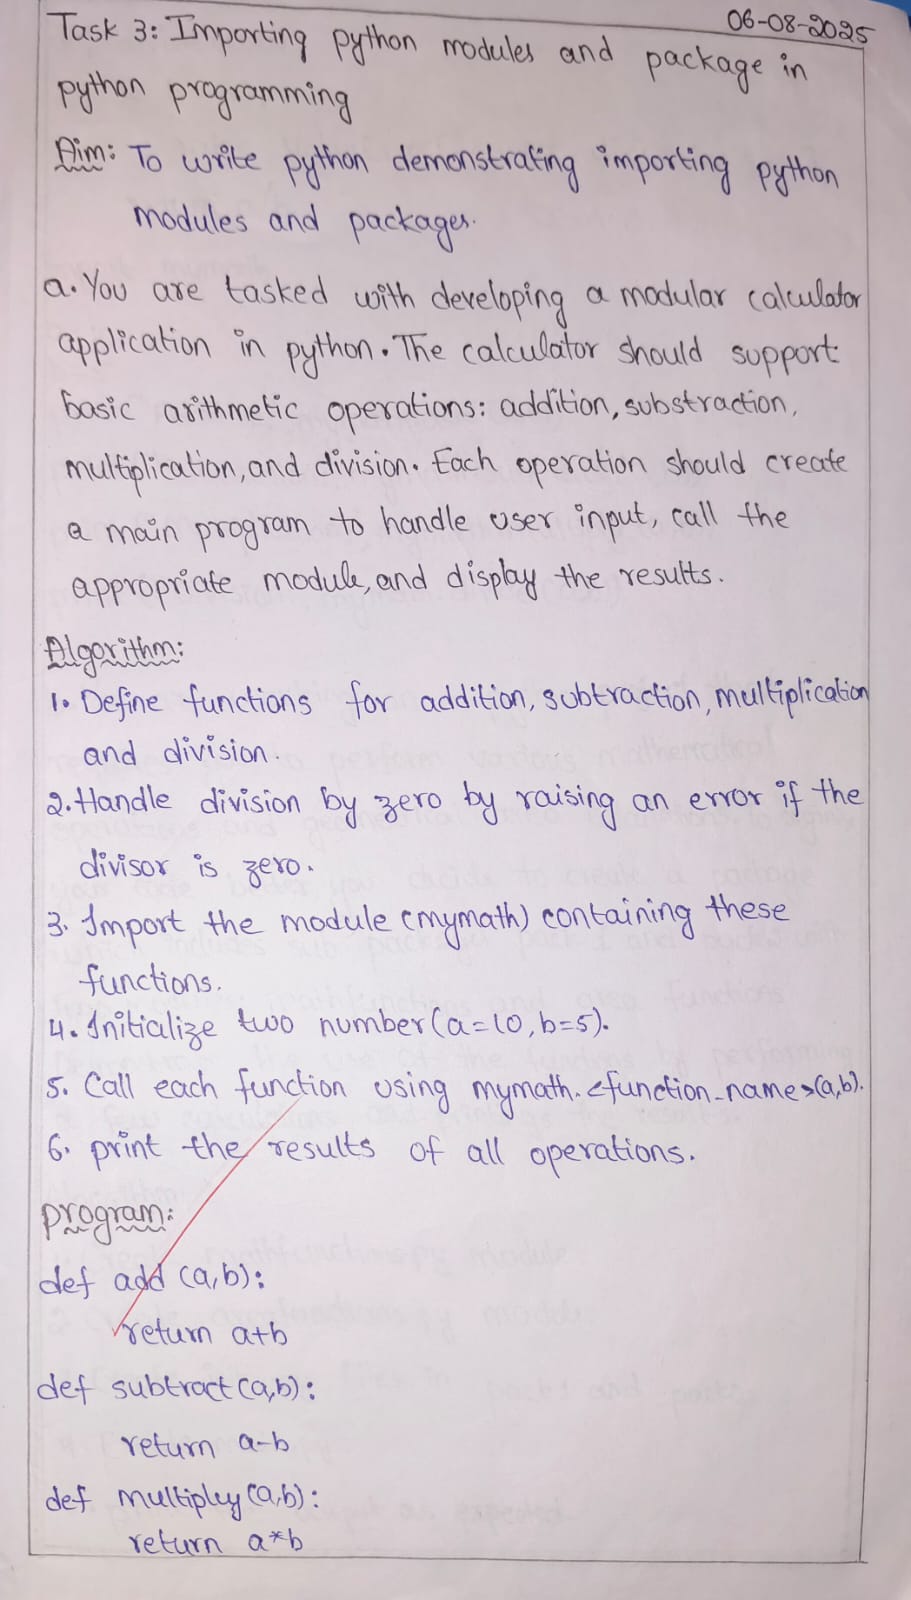 06-08-2025
Task 3: Importing python modules and package in
python programming
Aim: To write python demonstrating importing python
modules and packages.
a. You are tasked with developing a modular calculator
application in python. The calculator should support
basic arithmetic operations: addition, substraction,
multiplication, and division. Each operation should create
a main program to handle user input, call the
appropriate module, and display the results.
Algorithm:
1. Define functions for addition, subtraction, multiplication
and division.
2. Handle division by zero by raising an error if the
divisor is zero.
3. Import the module (mymath) containing these
functions.
4. Initialize two number (a=10, b=5).
5. Call each function using mymath.<function_name>(a,b).
6. print the results of all operations.
program:
def add (a,b):
return a+b
def subtract (a,b):
return a-b
def multiply (a,b):
return a*b